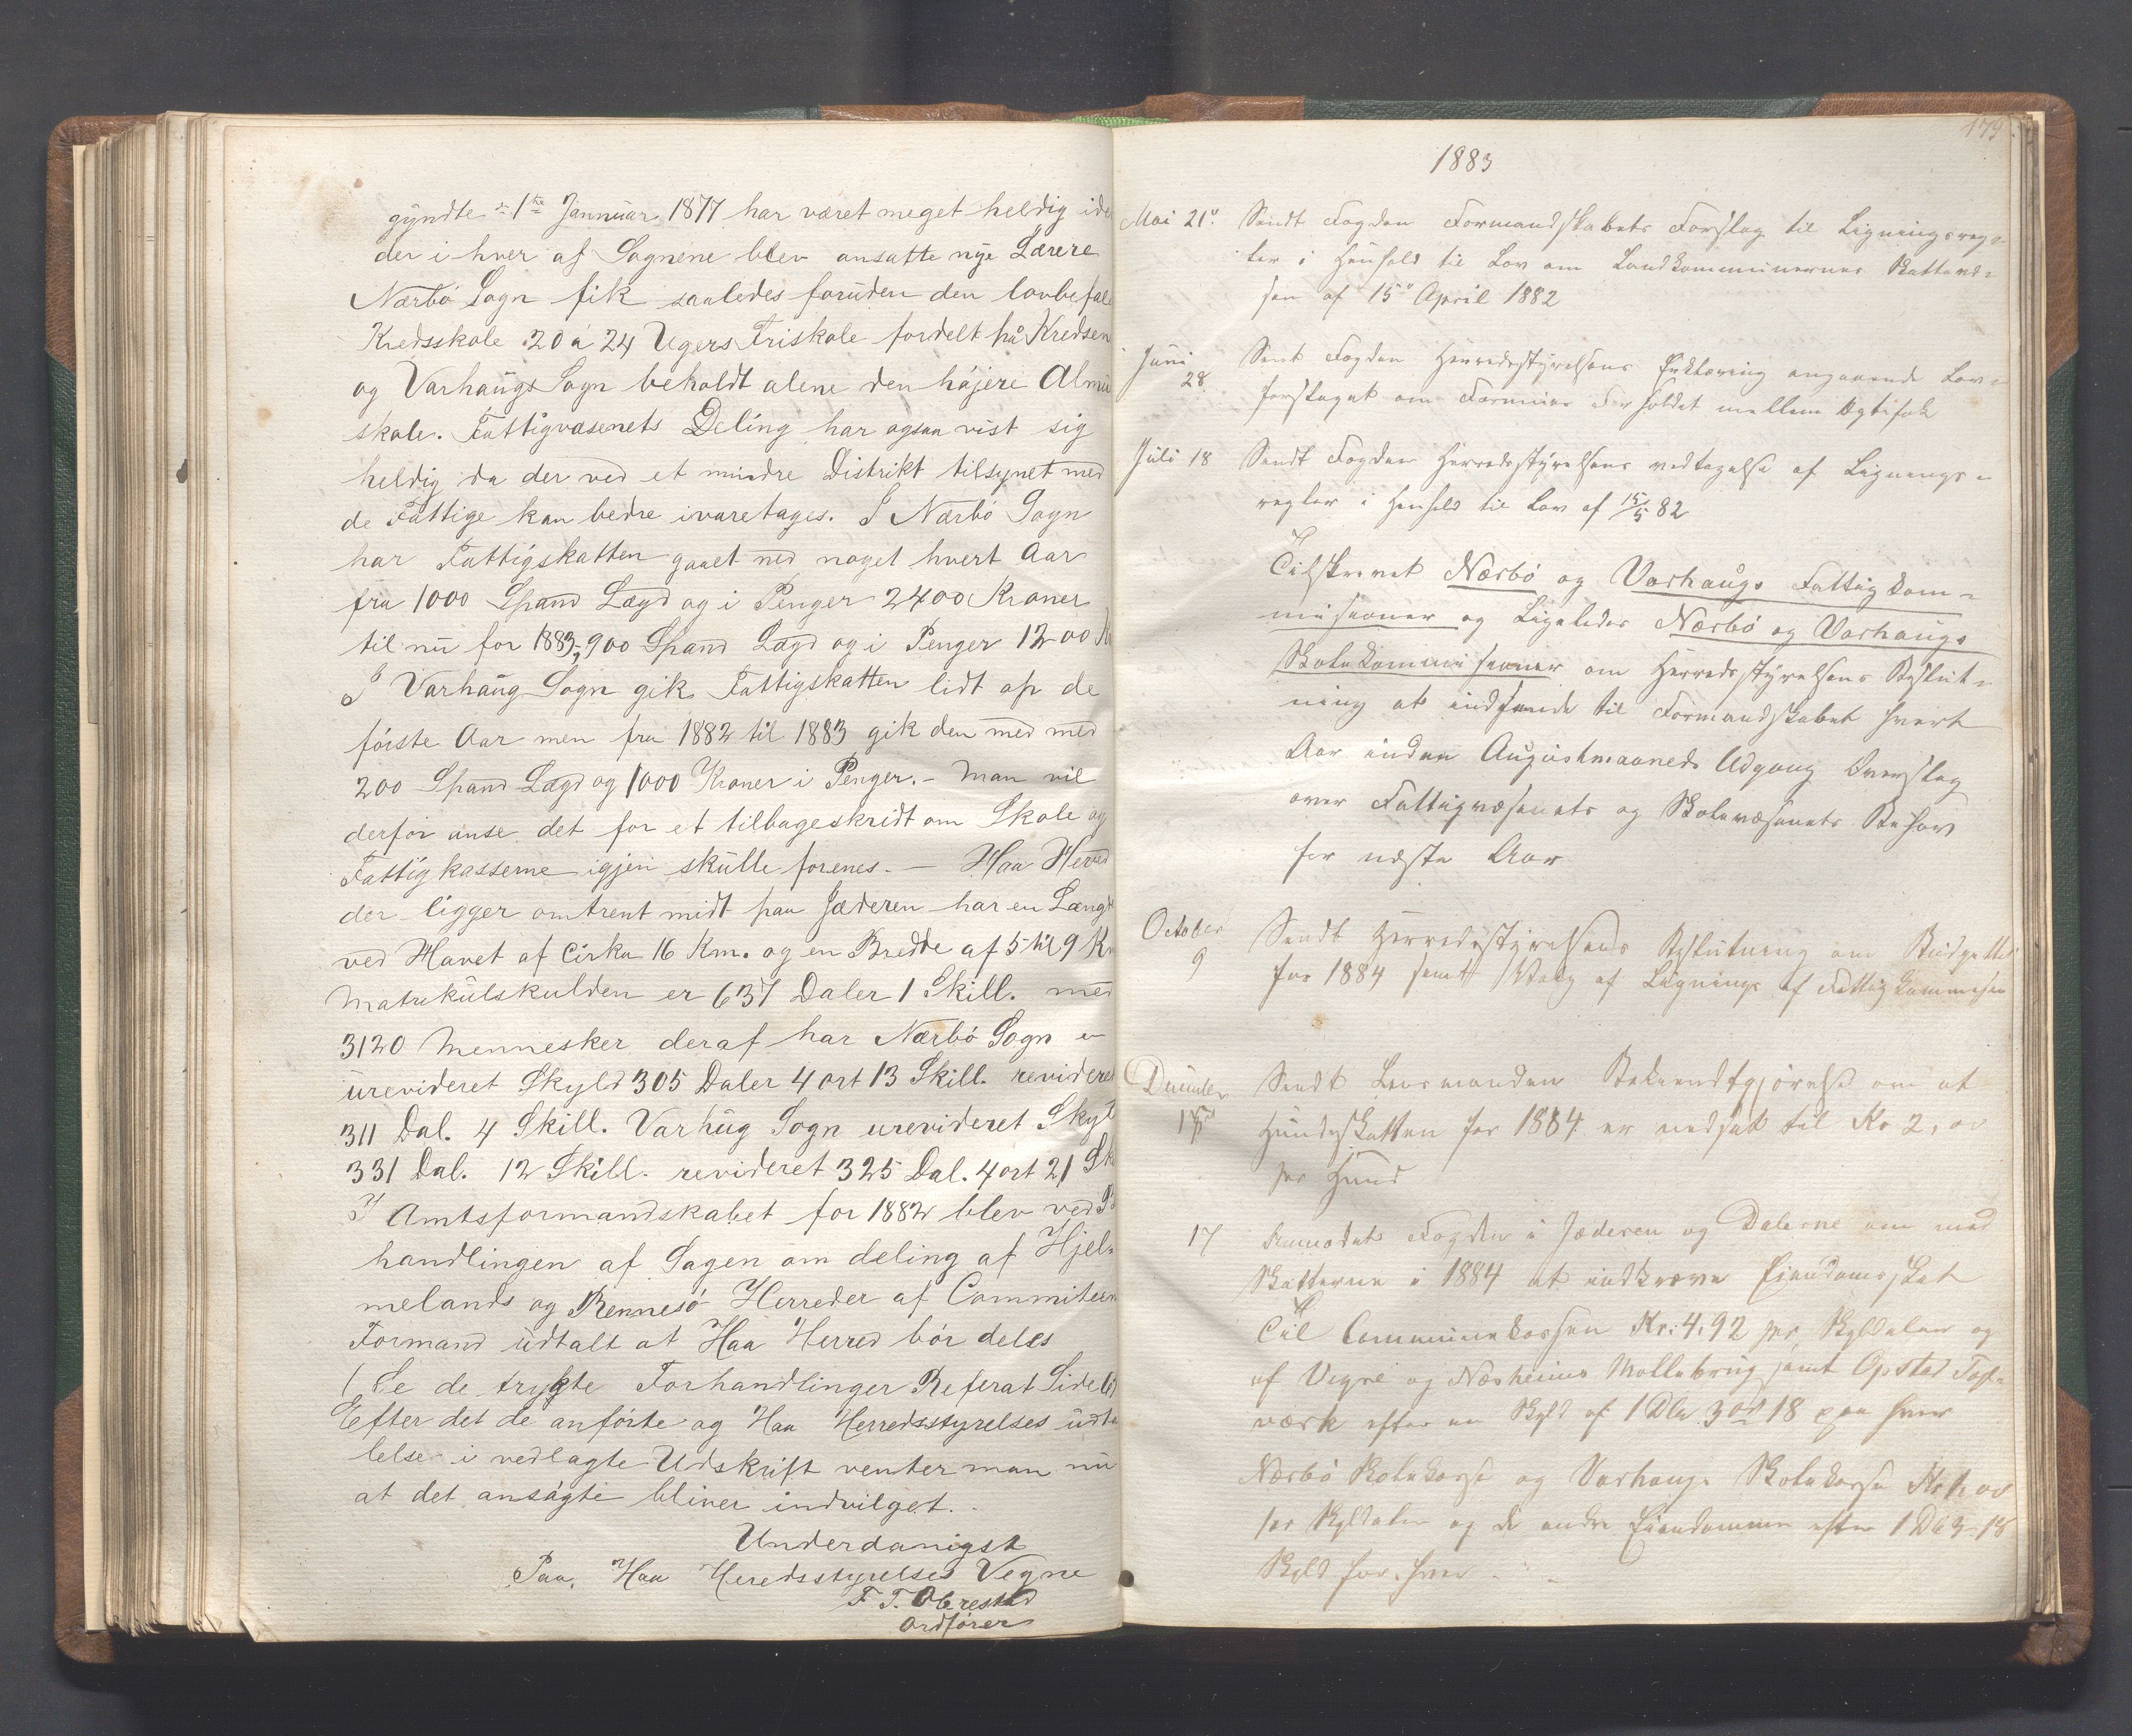 gyndte d. 1ste Jannuar 1877 har været meget heldig ide
der i hver af Sognene blev ansatte nye Lærere
Nærbö Sogn fik saaledes foruden den lovbefal
Kredsskole 20 a 24 Ugers Friskole fordelt på Kredsen
og Varhaugs Sogn beholdt alene den højere Almu
skole. Fattigvæsenets Deling har ogsaa vist sig
heldig da der ved et mindre Distrikt tilsynet med
de Fattige kan bedre ivaretages. I Nærbö Sogn
har Fattigskatten gaaet ned noget hvert Aar
fra 1000 Spand Lægd og i Penger 2400 Kroner
til nu for 1883, 900 Spand Lægd og i Penger 1200 K
I Varhaug Sogn gik Fattigskatten lidt op de
förste Aar men fra 1882 til 1883 gik den ned med
200 Spand Lægd og 1000 Kroner i Penger. - Man vil
derfor anse det for et tilbageskridt om Skole og
Fattigkasserne igjen skulle forenes. — Haa Herred
der ligger omtrent midt paa Jæderen har en Længd
ved Havet af cirka 16 Km. og en Bredde af 5 til 9 Km
Matrikulskulden er 637 Daler 1 Skill. med
3120 Mennesker deraf har Nærbö Sogn en
urevideret Skyld 305 Daler 4 ort 13 Skill. revideret
311 Dal. 4 Skill. Varhug Sogn urevideret Skyl
331 Dal. 12 Skill. revideret 325 Dal. 4 ort 21 Sk
I Amtsformandskabet for 1882 blev ved B
handlingen af Sagen om deling af Hjel-
melands og Rennesö Herreder af Commiteen
Formand udtalt at Haa Herred bör deles
(Se de trygte Forhandlinger Referat Side
Efter det de anförte og Haa Herredsstyrelses udta
lelse i vedlagte Udskrift venter man nu
at det ansögte bliver indvilget.
Underdanigst
Paa Haa Heredsstyrelses Vegne
F. T. Obrestad
Ordförer
179
1883
Mai 21de Sendt Fogden Formandskabets Forslag til Ligningsreg-
ler i Henhold til Lov om Landkommunernes Skattevæ-
sen af 15de April 1882
Juni 28 Sent Fogden Herredsstyrelsens Erklæring angaaende Lov-
forslaget om Formues Forholdet mellem Ægtefolk
Juli 18 Sendt Fogden Herredsstyrelsens vedtagelse af Lignings-
regler i Henhold til Lov af 15/5 82
Tilskrevet Nærbö og Varhaugs Fattigkom-
missioner og Ligeledes Nærbö og Varhaugs
Skolekommissioner om Herredsstyrelsens Beslut-
ning at indsende til Formandskabet hvert
Aar inden Augustmaaneds Udgang Overslag
over Fattigvæsenets og Skolevæsenets Behov
for næste Aar
October 9 Sendt Herredsstyrelsens Beslutning om Budgettet
for 1884 samt Valg af Lignings og Fattigkommission
Sendt Lensmanden Bekjendtgjörelse om at
Hundeskatten for 1884 er nedsat til Kr 2,00
pr Hund
17 Anmodet Fogden i Jæderen og Dalerne om med
Skatterne i 1884 at indkræve Eiendomsskat
Til Communekassen Kr. 4.92 pr Skylddaler og
af Vigre og Næsheims Möllebrug samt Opstad Tops-
værk efter en Skyld af 1 Dlr 3 ort 18 paa hver
Nærbö Skolekasse og Varhaugs Skolekasse Kr 1.00
pr Skylddaler og de andre Eiendomme efter 1 Dl 3-18
Skyld for hver